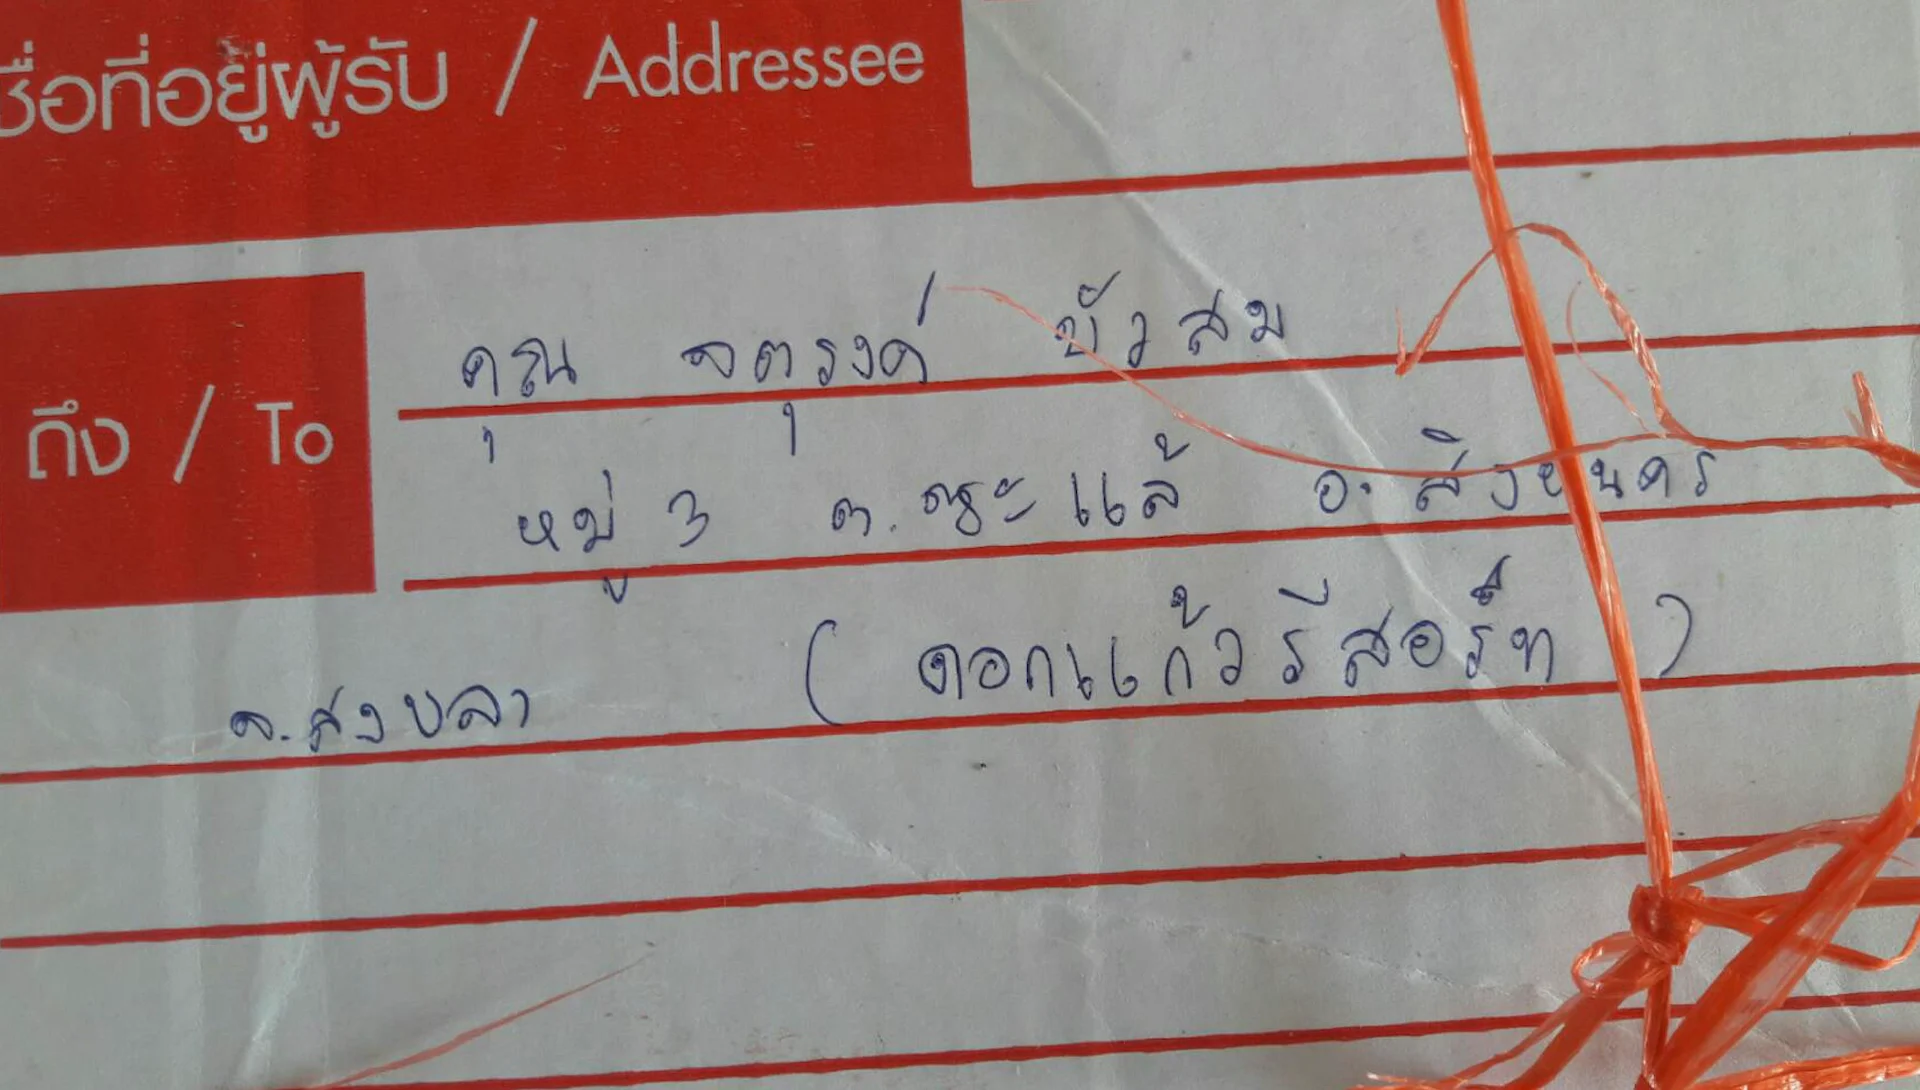 ชื่อที่อยู่ผู้รับ / Addressee
ถึง / To
คุณ จตุรงค์ บัวสม
หมู่ 3 ต.ชะแล้ อ. สิงหนคร
จ.สงขลา (ดอกแก้วรีสอร์ท)